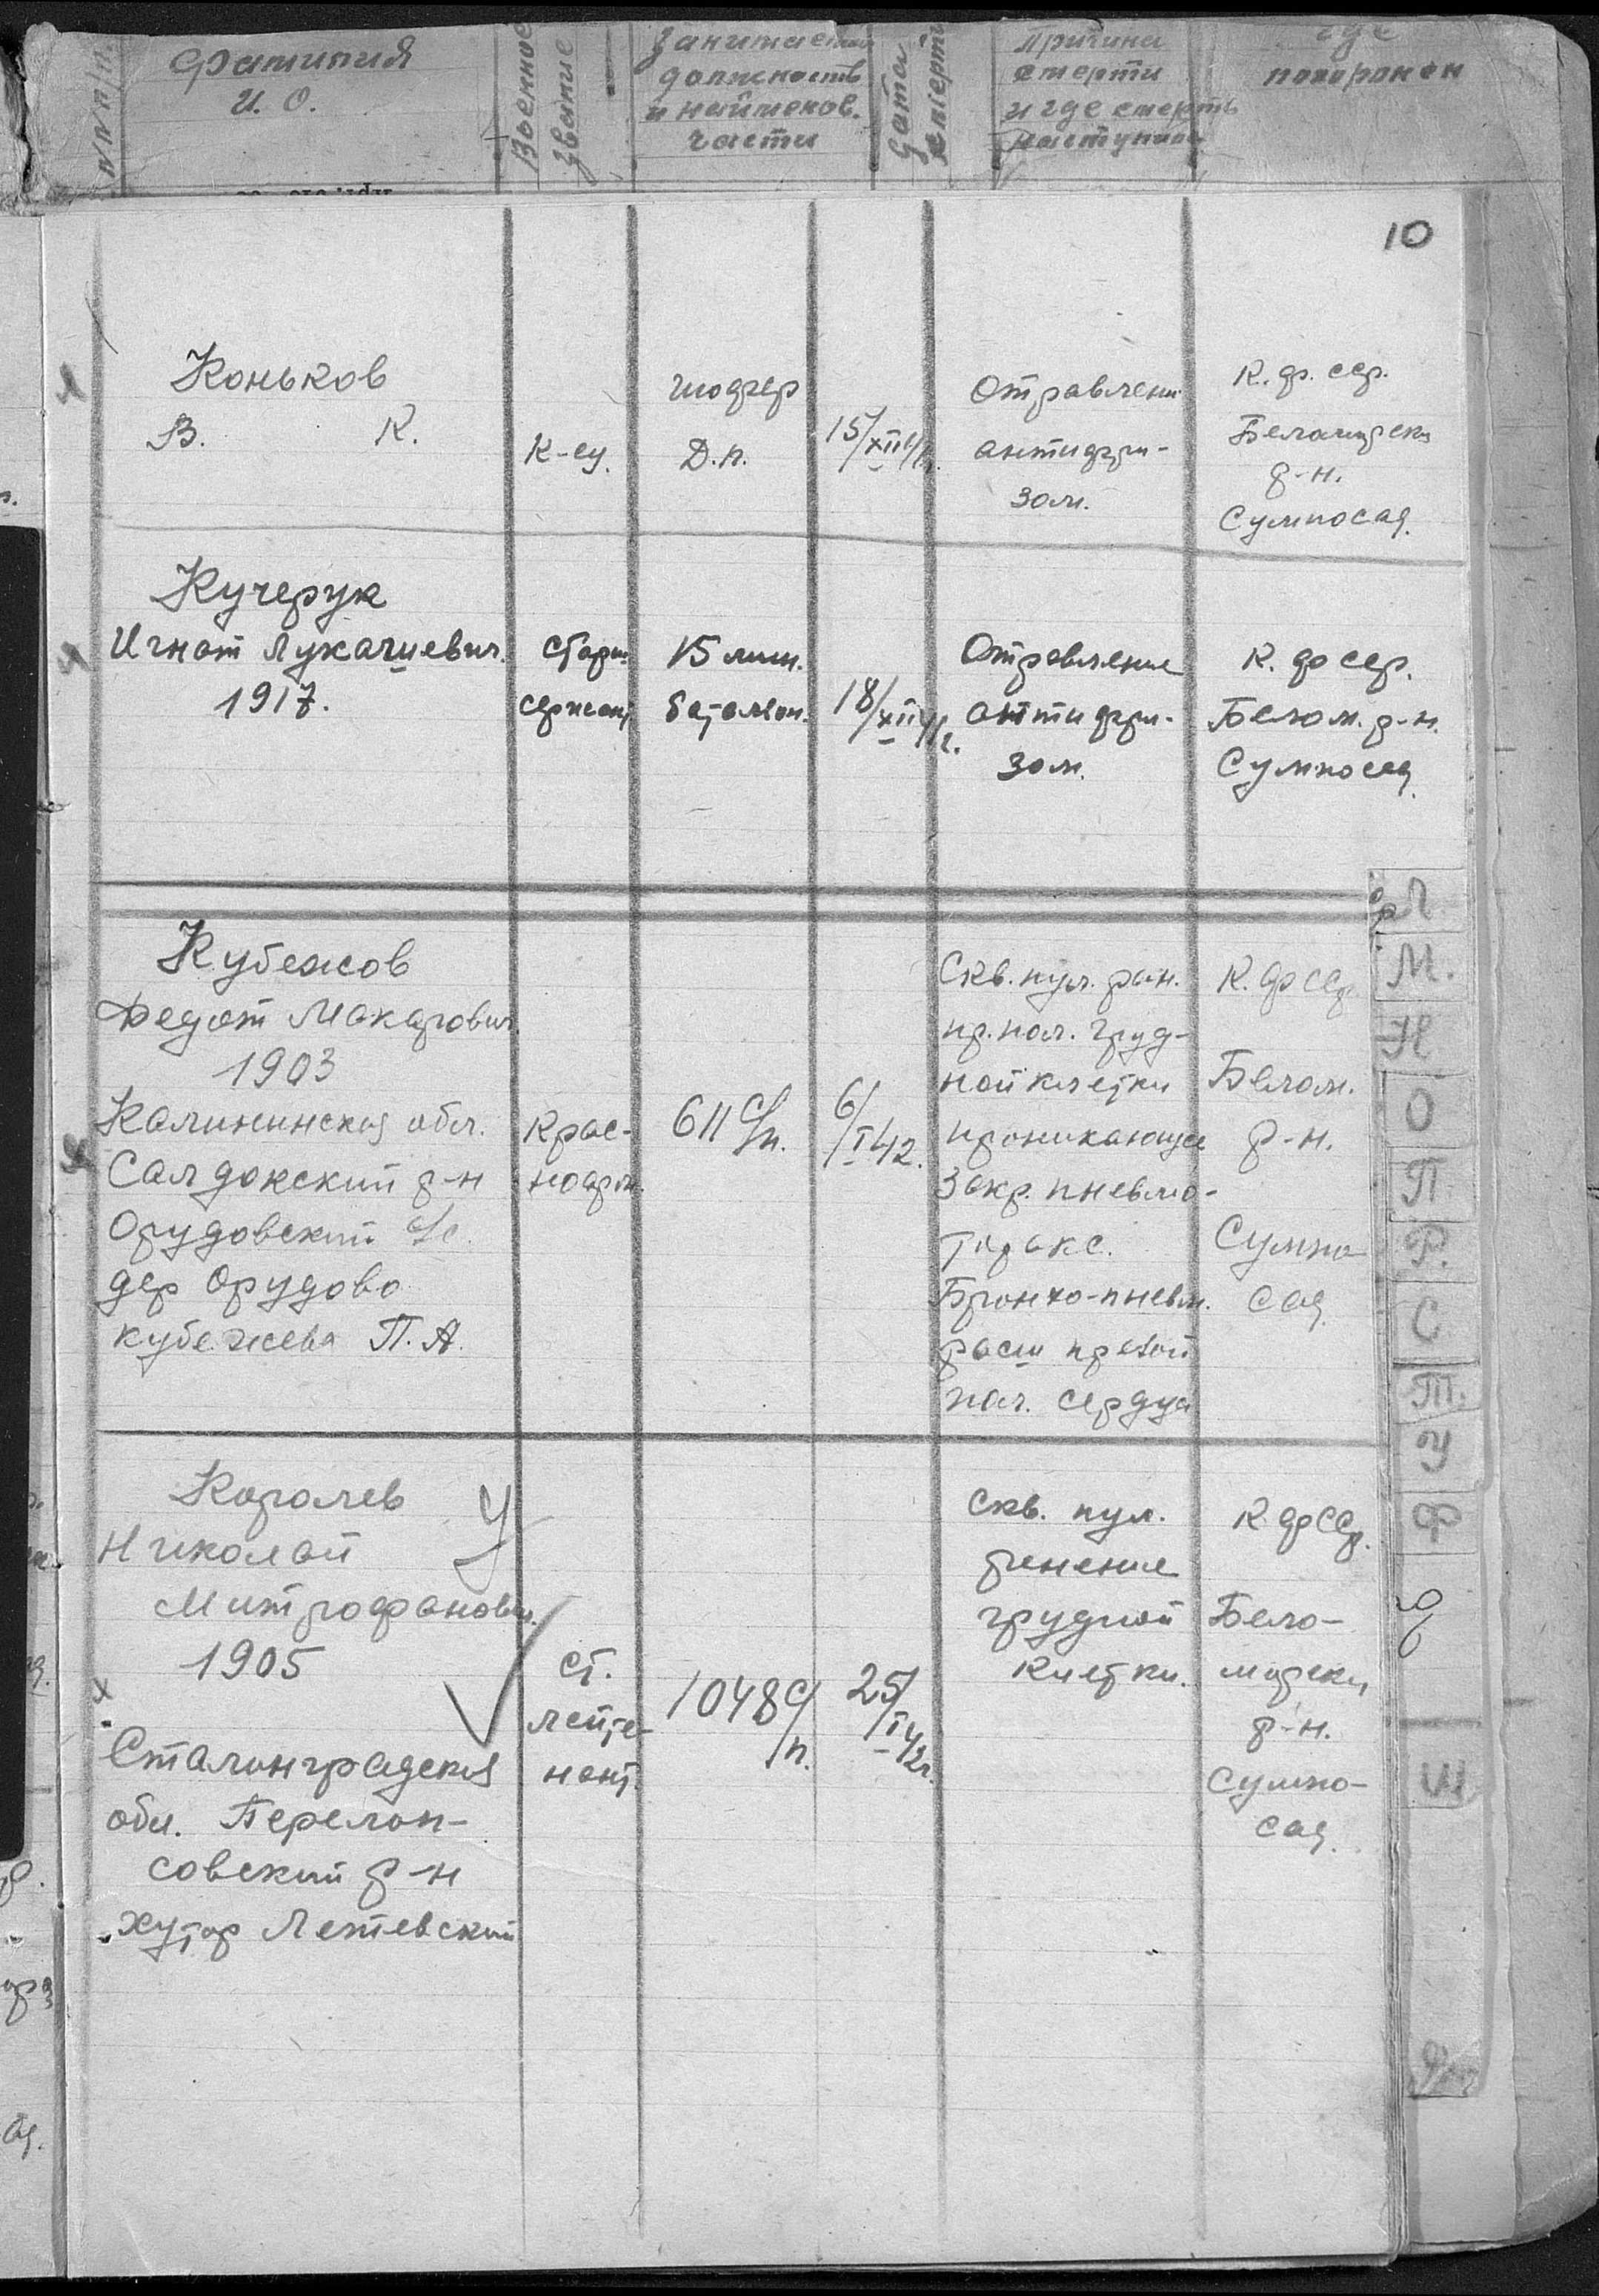 NN п/п.
Фамилия
И. О.
Военное
звание
Занимаемая
должность
и наименов.
части
Дата
смерти
Причина
смерти
и где смерть
наступила
где
похоронен
10
Коньков
В. К.
К-ец.
шофер
Д.п.
15/XII 41г.
Отравлен
антифри-
зом.
К. ф. сср.
Беломорск
р-н.
Сумпосад.
Кучерук
Игнат Лукачиевич.
1917.
Старш.
сержант
15 лыж.
батальон.
18/XII 41г.
Отравление
антифри-
зом.
К. ф сср.
Белом. р-н.
Сумпосад.
Кубежов
Федот Макарович
1903
Калининская обл.
Сандокский р-н
Орудовский с/с.
дер Орудово
Кубежева П. А.
Крас-
ноарм.
611 с/п.
6/I 42.
Скв. пул. ран.
пр. пол. груд-
ной клетки
проникающее
Закр. пневмо-
торакс.
Бронхо-пневм.
расш правой
пол. сердца
К. ф ССр
Белом.
р-н.
Сумпо
сад
Королев
Николай
Митрофанович.
1905
Сталинградская
обл. Перелоп-
совский р-н
хутор Летевский
Ст.
лейте-
нант.
1048 с/п.
25/I 42г.
Скв. пул.
ранение
грудной
клетки.
К ф ССр.
Бело-
морски
р-н.
Сумпо-
сад.
Л
М.
Н
О
П
Р.
С
Т.
У
Ф
Ш